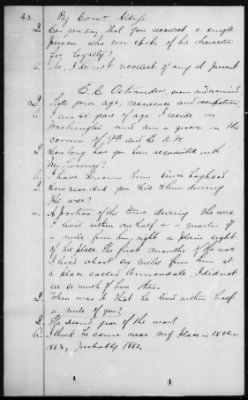 42 By Comr. Aldis
Q Can you say that you recollect a single
person who ever spoke of his character
for loyalty?
A. No, I do not recollect of any at present
sworn and examined
Q State your age, residence and occupation
A. I am 50 years of age I reside in
Washington and am a grocer in the
corner of 9th and C sts.
Q How long has you been acquainted with
Mr.
A. I have known him since boyhood
Q How near did you live to him during
the war?
A. A portion of the time during the war
I lived within one half or a quarter of
a mile from him right in plain sight
of his place the first months of the war
I lived about six miles from him at
a place called Annandale. I did not
see so much of him then.
Q. When was it that he lived within half
a mile of you?
Q. The second year of the war?
A. I think he came near my place in 1861 or
1862, probably 1862,